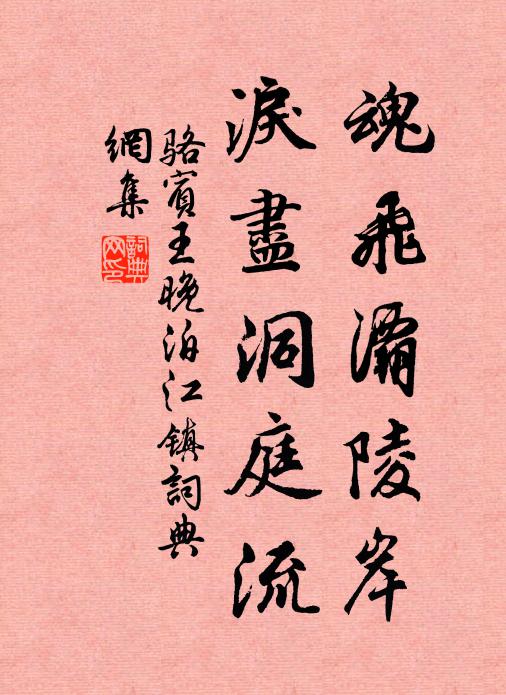 魂飛灞陵岸
淚盡洞庭流
駱賓王晚泊江鎮詞典
網集
詞典網印